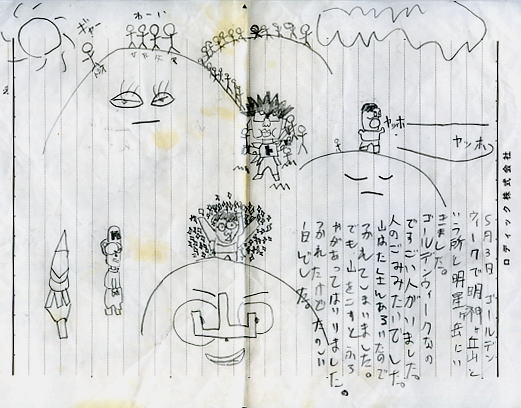 ギャー
わーい
ヤッホ
ヤッホ
ロディック株式会社
5月3日 ゴールデン
ウィークで明神ヶ丘山と
いう所と明星ヶ岳にい
きました。
ゴールデンウィークなの
ですごい人がいました。
人のごみみたいでした。
山はたくさんあるいたので
つかれてしまいました。
でも山を二つとふろ
やがあってはいりました。
つかれたけどたのしい
日でした。